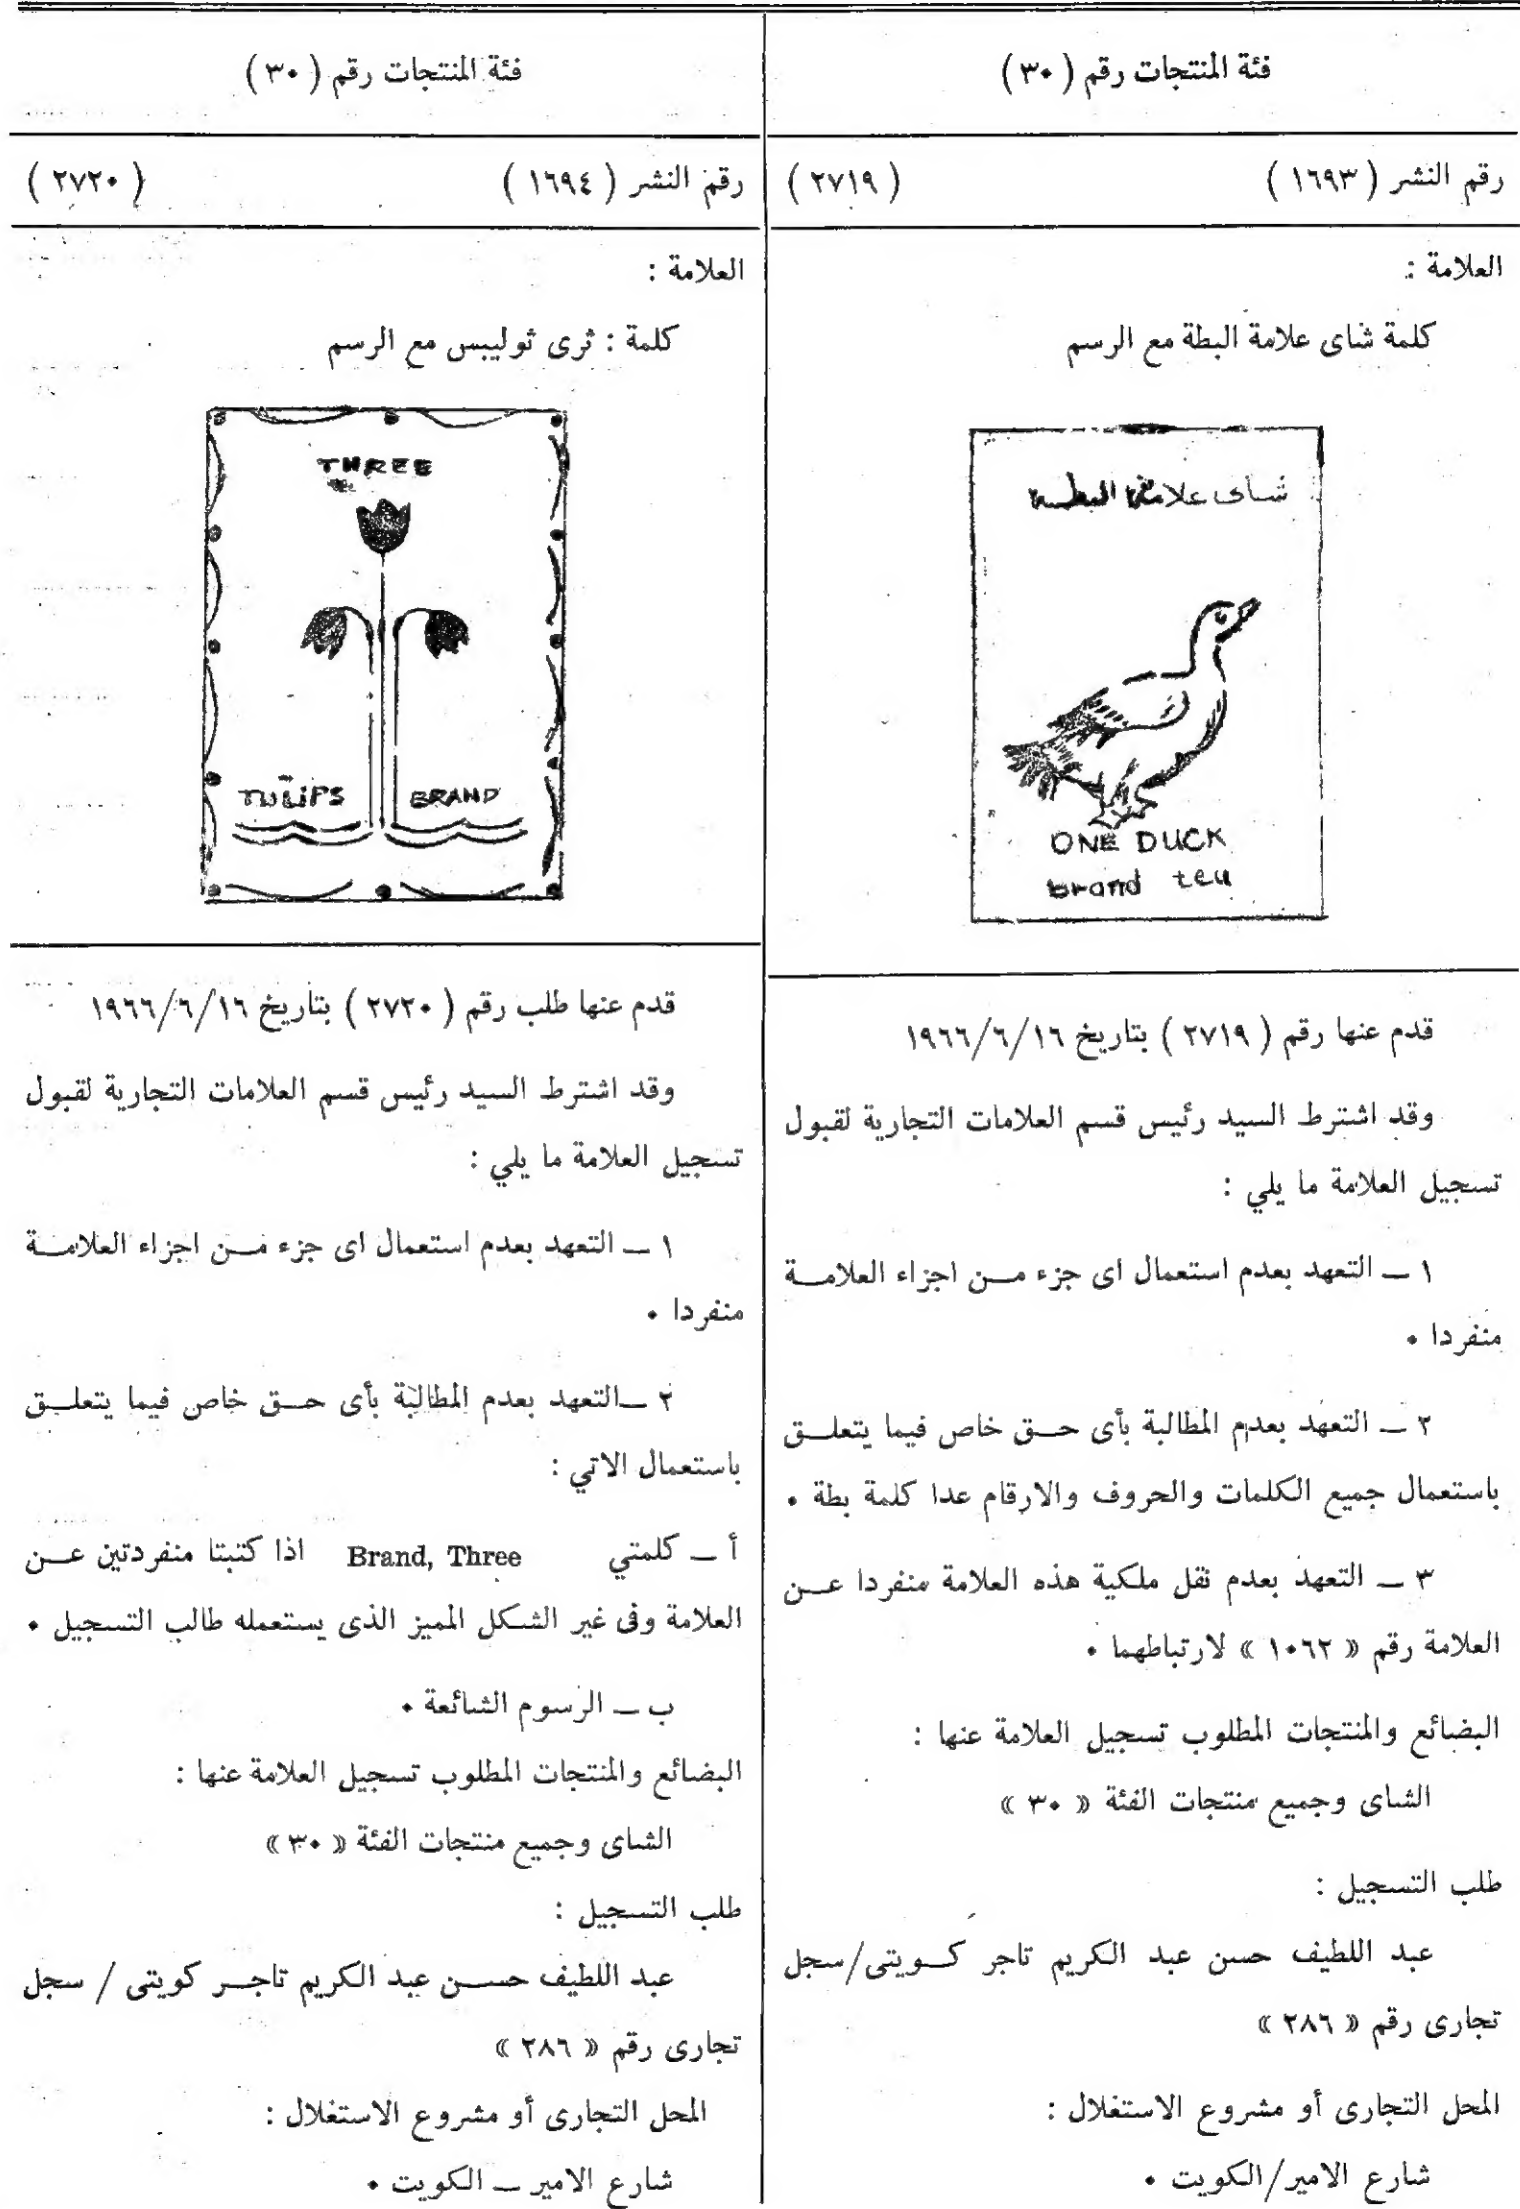 فئة المنتجات رقم ( ٣٠ )
رقم النشر ( ١٦٩٣ ) ( ٢٧١٩ )
العلامة :
كلمة شاى علامة البطة مع الرسم
شاى علامة البطة
ONE DUCK
brand tea
قدم عنها رقم ( ٢٧١٩ ) بتاريخ ١٩٦٦/٦/١٦
وقد اشترط السيد رئيس قسم العلامات التجارية لقبول
تسجيل العلامة ما يلي :
١ ـ التعهد بعدم استعمال اى جزء مـن اجزاء العلامـة
منفردا ٠
٢ ـ التعهد بعدم المطالبة بأى حـق خاص فيما يتعلـق
باستعمال جميع الكلمات والحروف والارقام عدا كلمة بطة ٠
٣ ـ التعهد بعدم نقل ملكية هذه العلامة منفردا عـن
العلامة رقم « ١٠٦٢ » لارتباطهما ٠
البضائع والمنتجات المطلوب تسجيل العلامة عنها :
الشاى وجميع منتجات الفئة « ٣٠ »
طلب التسجيل :
عبد اللطيف حسن عبد الكريم تاجر كـويتى/سجل
تجارى رقم « ٢٨٦ »
المحل التجارى أو مشروع الاستغلال :
شارع الامير/الكويت ٠
فئة المنتجات رقم ( ٣٠ )
رقم النشر ( ١٦٩٤ ) ( ٢٧٢٠ )
العلامة :
كلمة : ثرى ثوليبس مع الرسم
THREE
TULIPS BRAND
قدم عنها طلب رقم ( ٢٧٢٠ ) بتاريخ ١٩٦٦/٦/١٦
وقد اشترط السيد رئيس قسم العلامات التجارية لقبول
تسجيل العلامة ما يلي :
١ ـ التعهد بعدم استعمال اى جزء مـن اجزاء العلامـة
منفردا ٠
٢ ـالتعهد بعدم المطالبة بأى حـق خاص فيما يتعلـق
باستعمال الاتي :
أ ـ كلمتي Brand, Three اذا كتبتا منفردتين عـن
العلامة وفى غير الشكل المميز الذى يستعمله طالب التسجيل ٠
ب ـ الرسوم الشائعة ٠
البضائع والمنتجات المطلوب تسجيل العلامة عنها :
الشاى وجميع منتجات الفئة « ٣٠ »
طلب التسجيل :
عبد اللطيف حسـن عبد الكريم تاجـر كويتى / سجل
تجارى رقم « ٢٨٦ »
المحل التجارى أو مشروع الاستغلال :
شارع الامير ـ الكويت ٠